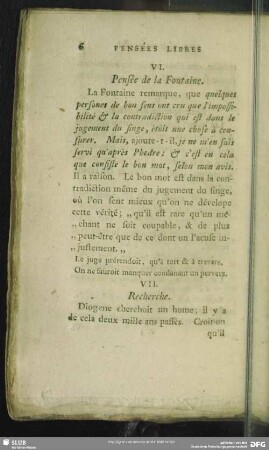 6 PENSÉES LIBRES
VI.
Pensée de la Fontaine.
La Fontaine remarque, que quelques
persones de bon sens ont cru que l'impossi-
bilité & la contradiction qui est dans le
jugement du singe, étoit une chose à cen-
surer. Mais, ajoute-t-il, je ne m'en suis
servi qu'après Phedre; & c'est en cela
que consiste le bon mot, selon mon avis.
Il a raison. Le bon mot est dans la con-
tradiction même du jugement du singe,
où l'on sent mieux qu'on ne dévelope
cette vérité; „qu'il est rare qu'un mé-
„chant ne soit coupable, & de plus
„peut-être que de ce dont on l'acuse in-
„justement.„
Le juge prétendoit, qu'à tort & à travers,
On ne sauroit manquer condanant un pervers.
VII.
Recherche.
Diogene cherchoit un home; il y a
de cela deux mille ans passés. Croit-on
qu'il
SLUB